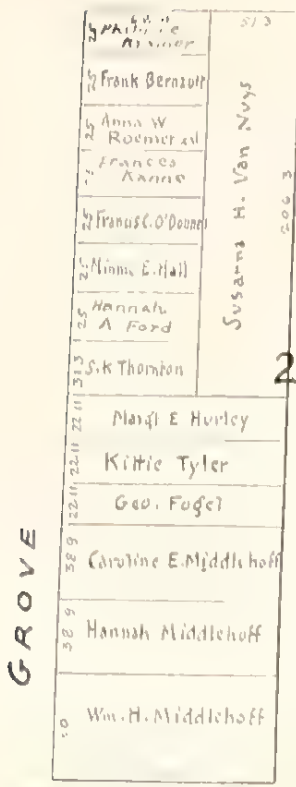 51 3
Kramer
25 Frank Bernzott
25 Anna W
Roemer
Frances
Kanne
25 Francis C. O'Donnel
25 Minna E. Hall
25 Hannah
A Ford
31 3 S.K Thornton
Susanna H. Van Nuys
206 3
2
22 11 Margt E Hurley
22 11 Kittie Tyler
22 11 Geo. Fogel
38 9 Caroline E. Middlehoff
38 9 Hannah Middlehoff
Wm. H. Middlehoff
GROVE